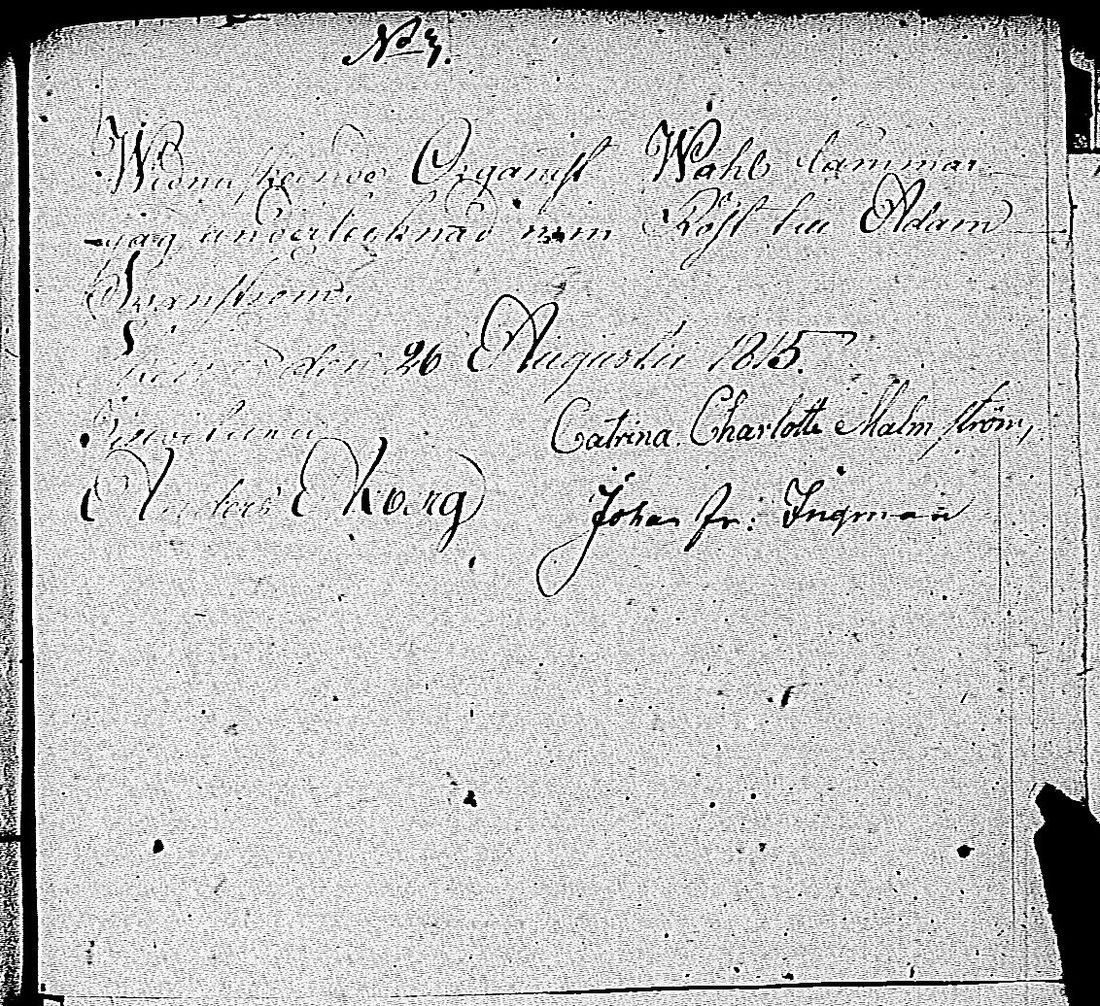 No 3.
Widnu skeende Organist Wahl lämmar
jag undertecknad min Röst till Adam
Svanström.
den 26 Augustii 1815.
Catrina Charlotte Malmström,
Anders Skoug
Johan Fr: Ingman